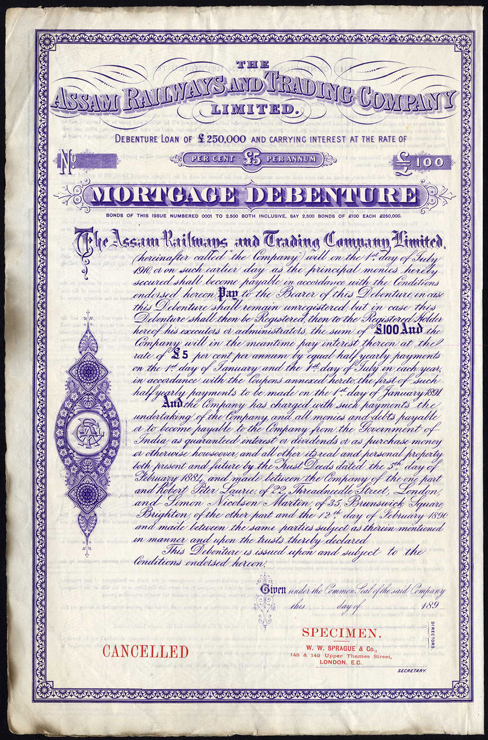 THE
ASSAM RAILWAYS AND TRADING COMPANY
LIMITED.
DEBENTURE LOAN OF £250,000 AND CARRYING INTEREST AT THE RATE OF
No
PER CENT £5 PER ANNUM
£100
MORTGAGE DEBENTURE
BONDS OF THIS ISSUE NUMBERED 0001 TO 2,500 BOTH INCLUSIVE, SAY 2,500 BONDS OF £100 EACH £250,000.
The Assam Railways and Trading Company Limited,
(hereinafter called "the Company") will on the 1st day of July
1910, or on such earlier day as the principal monies hereby
secured shall become payable in accordance with the Conditions
endorsed hereon Pay to the Bearer of this Debenture in case
this Debenture shall remain unregistered but in case this
Debenture shall then be Registered, then to the Registered Holder
hereof his executors or administrators the sum of £100 And the
Company will in the meantime pay interest thereon at the
rate of £5 per cent per annum by equal half yearly payments
on the 1st day of January and the 1st day of July in each year,
in accordance with the Coupons annexed hereto, the first of such
half yearly payments to be made on the 1st day of January 1891
And the Company has charged with such payments the
undertaking of the Company and all moneys and debts payable
or to become payable to the Company from the Government of
India as guaranteed interest or dividends or as purchase money
or otherwise howsoever, and all other its real and personal property
both present and future by the Trust Deeds dated the 5th day of
February 1889, and made between the Company of the one part
and Robert Peter Laurie, of 22, Threadneedle Street, London,
and Simon Nicolson Martin, of 35 Brunswick Square,
Brighton, of the other part and the 12th day of February 1890
and made between the same parties subject as therein mentioned
in manner and upon the trusts thereby declared
This Debenture is issued upon and subject to the
Conditions endorsed hereon.
Given under the Common Seal of the said Company
this day of 189
DIRECTORS
SPECIMEN.
CANCELLED
W. W. SPRAGUE & Co.,
148 & 149 Upper Thames Street,
LONDON, E.C.
SECRETARY.